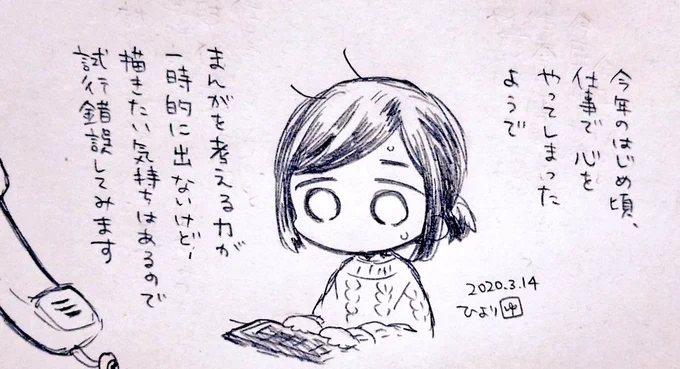 今年のはじめ頃、
仕事で心を
やってしまった
ようで
まんがを考える力が
一時的に出ないけど、
描きたい気持ちはあるので
試行錯誤してみます
2020.3.14
ひより ゆ